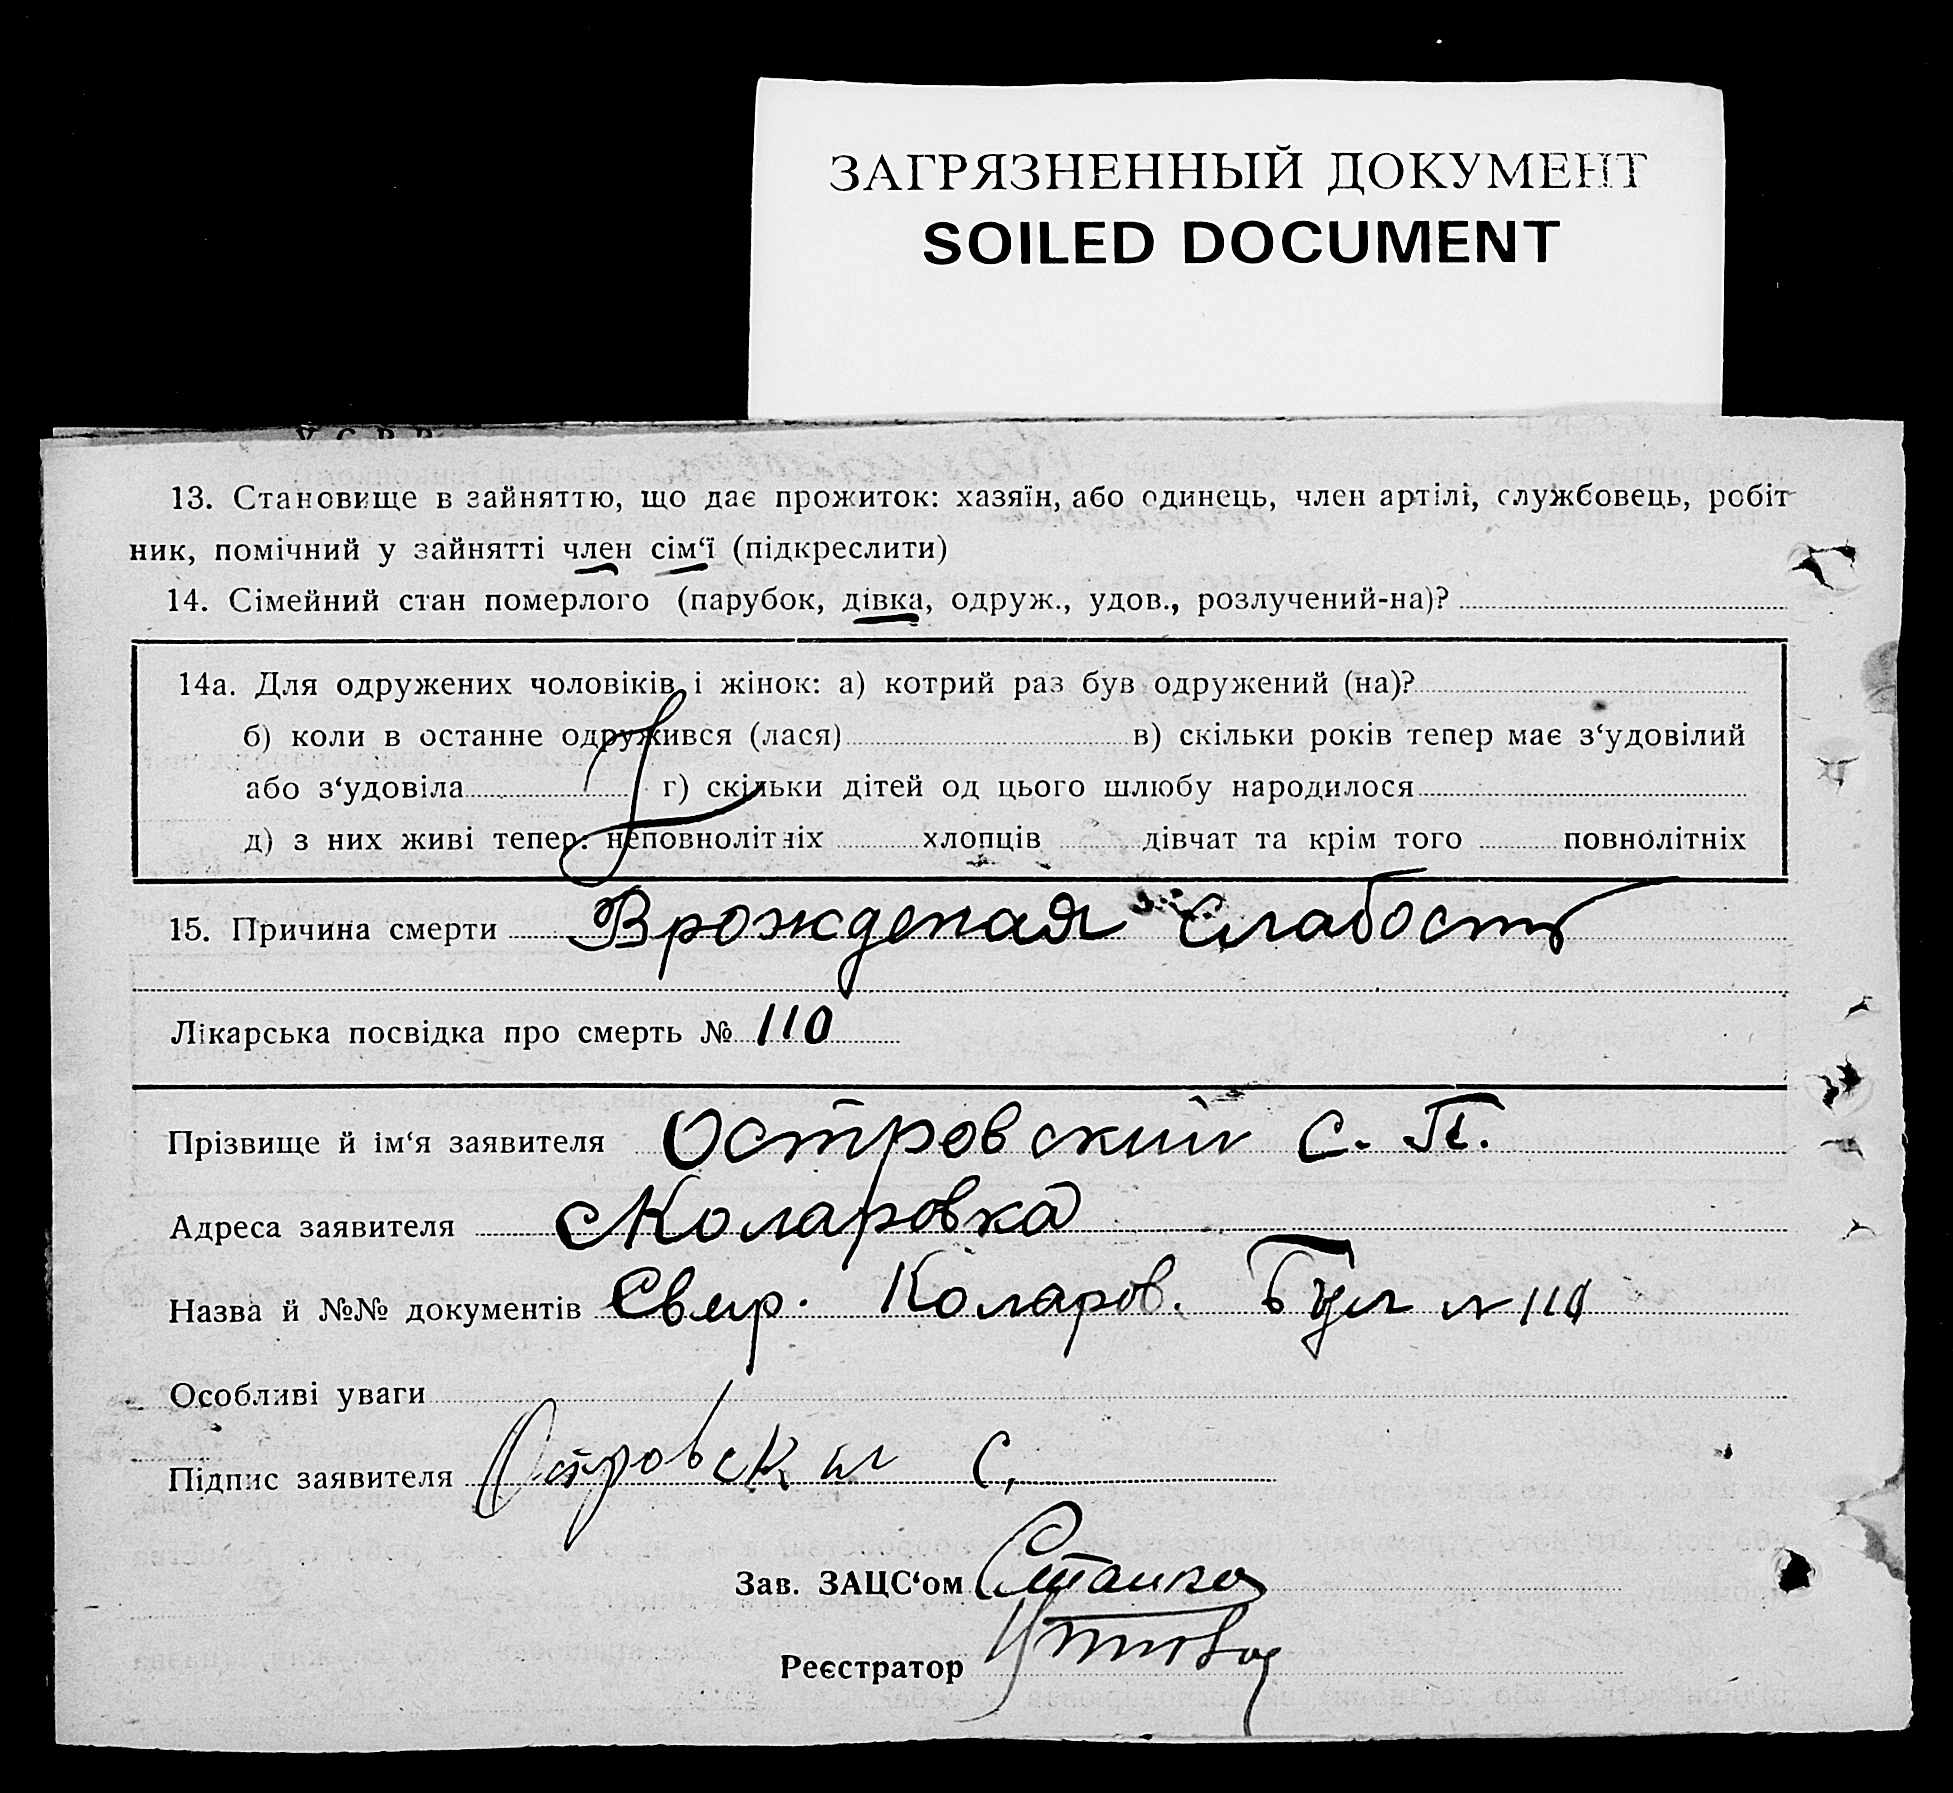 ЗАГРЯЗНЕННЫЙ ДОКУМЕНТ
SOILED DOCUMENT
13. Становище в зайняттю, що дає прожиток: хазяїн, або одинець, член артілі, службовець, робіт
ник, помічний у зайнятті член сім‘ї (підкреслити)
14. Сімейний стан померлого (парубок, дівка, одруж., удов., розлучений-на)?
14а. Для одружених чоловіків і жінок: а) котрий раз був одружений (на)?
б) коли в останне одружився (лася) в) скільки років тепер має з‘удовілий
або з‘удовіла г) скільки дітей од цього шлюбу народилося
д) з них живі тепер: неповнолітніх хлопців дівчат та крім того повнолітніх
15. Причина смерти Врожденая слабость
Лікарська посвідка про смерть № 110
Прізвище й ім‘я заявителя Островский С. П.
Адреса заявителя Коларовка
Назва й №№ документів Коларов. № 110
Особливі уваги
Підпис заявителя Островский С.
Зав. ЗАЦС‘ом
Реєстратор